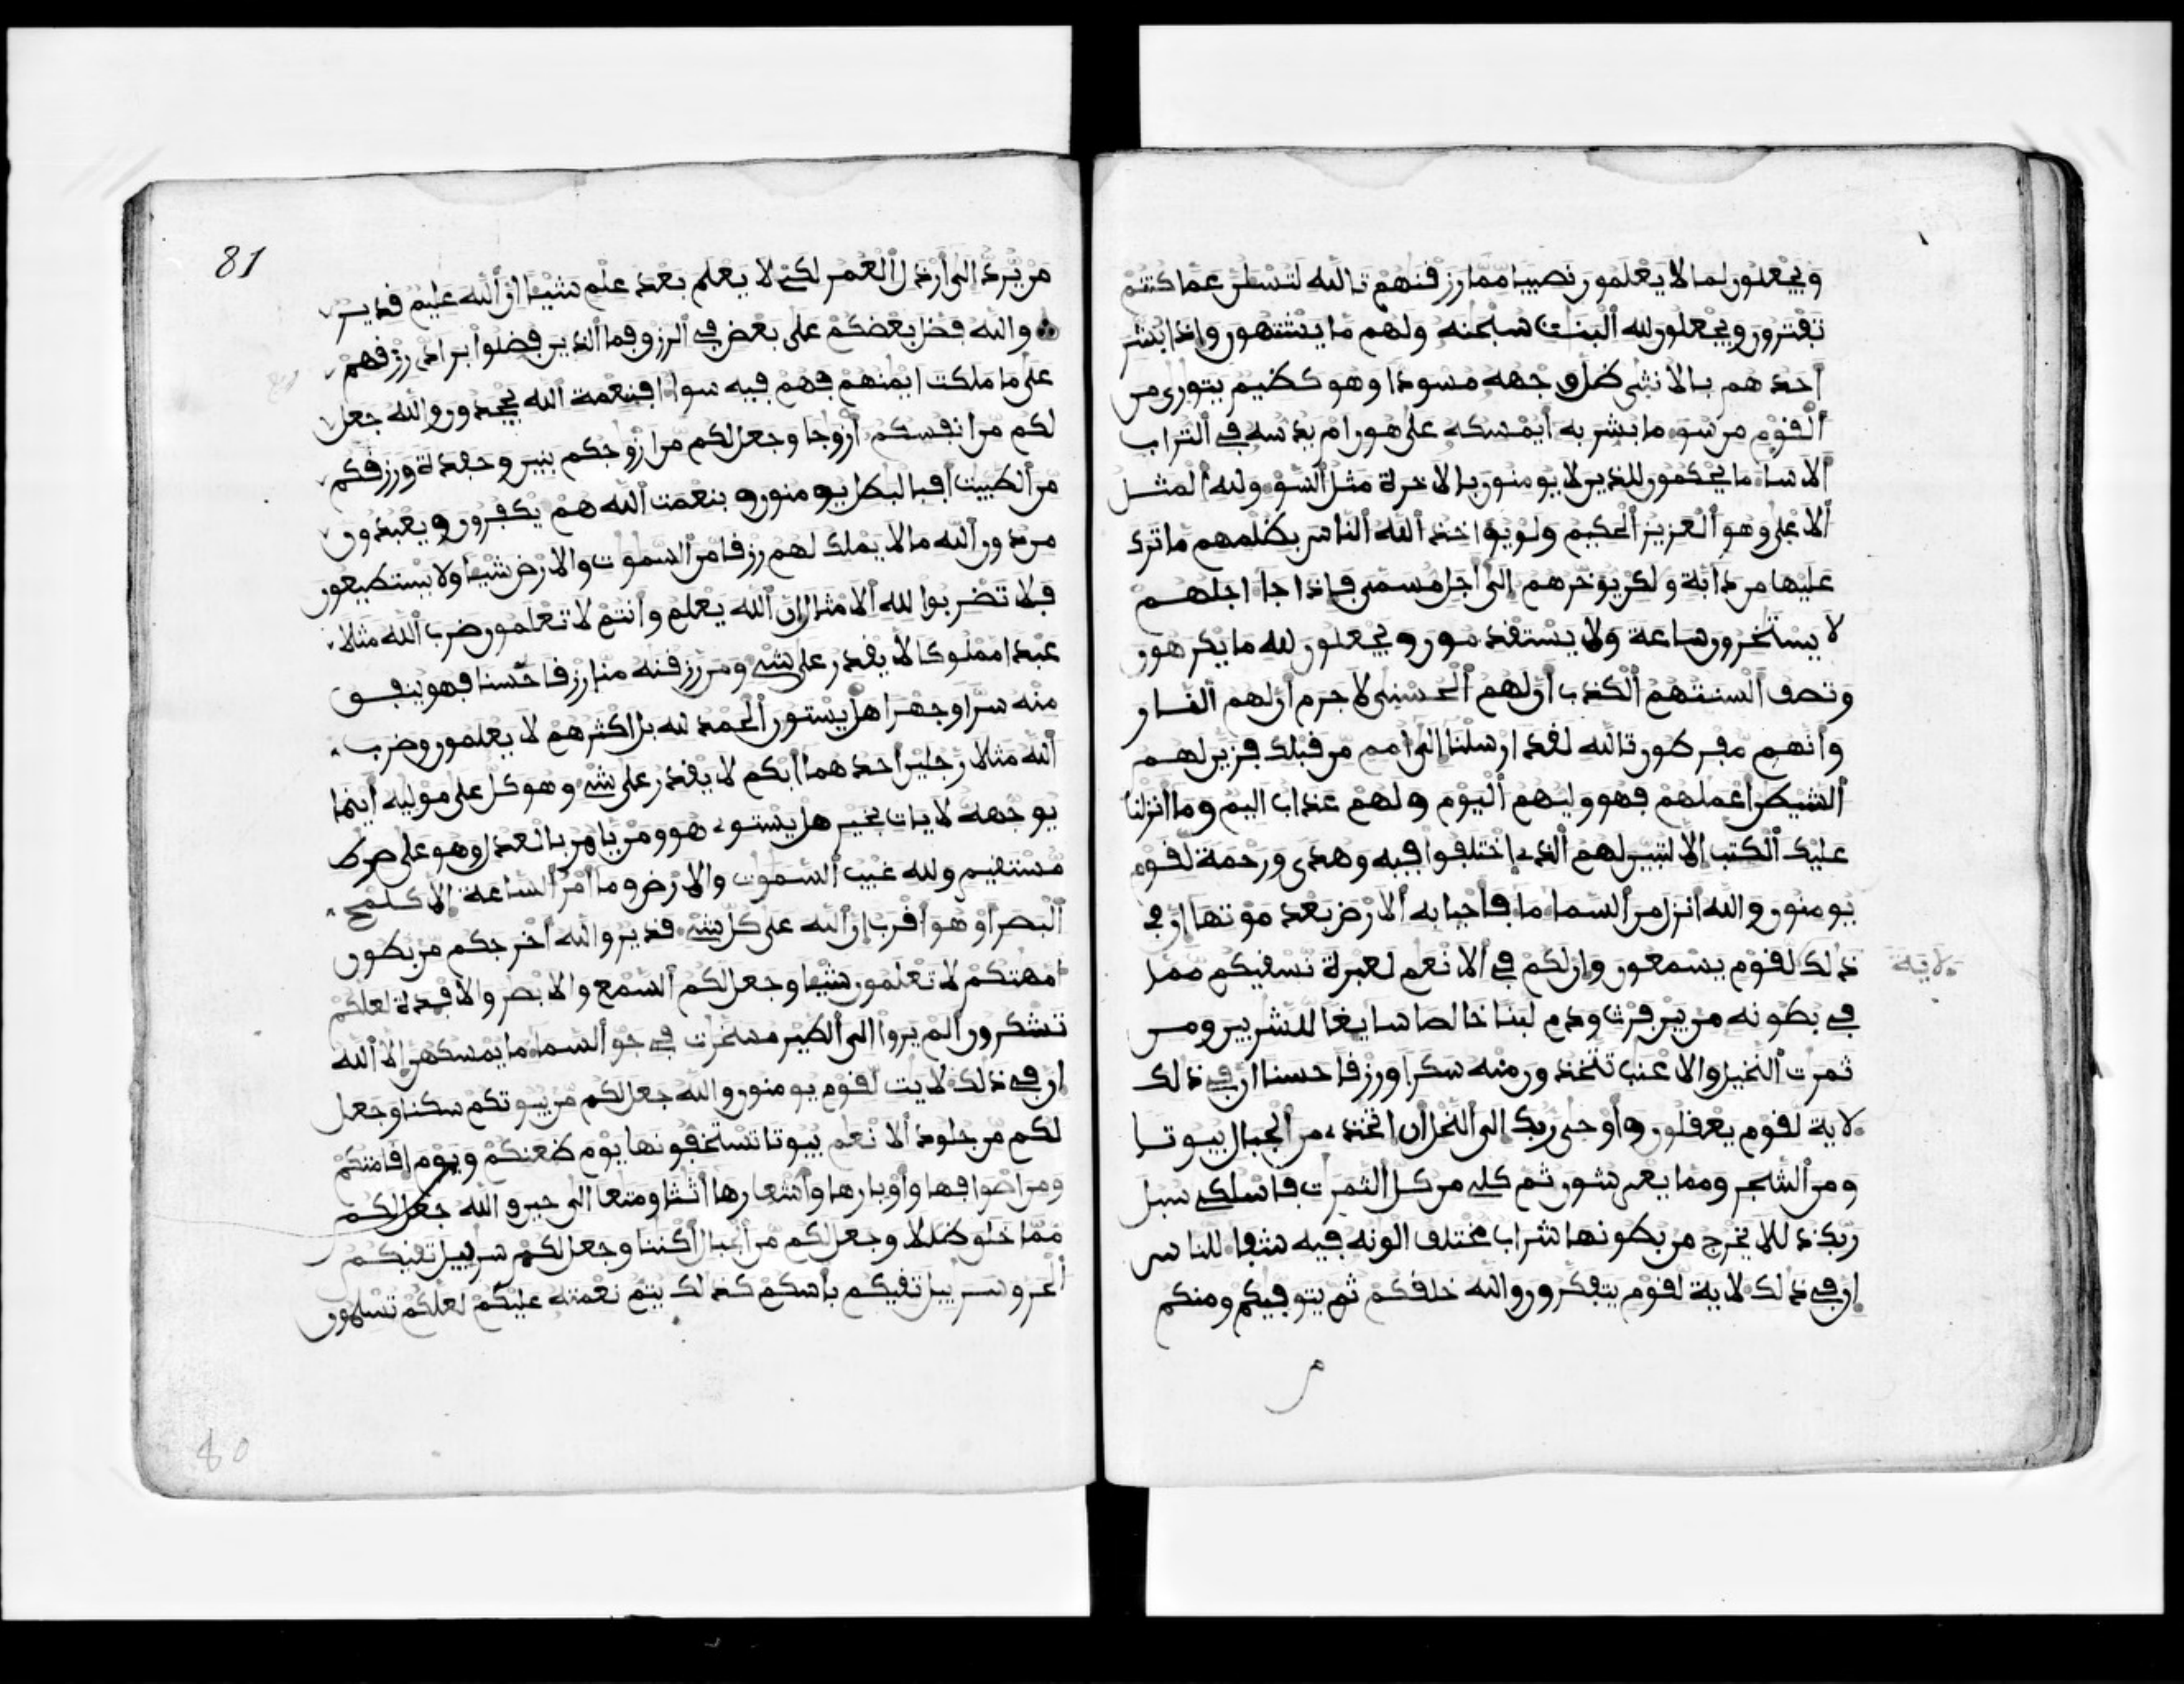 ويجعلون لما لا يعلمون نصيبا مما رزقنهم تالله لتسئلن عما كنتم
تفترون ويجعلون لله البنت سبحنه ولهم ما يشتهون واذا بشر
احدهم بالانثى ظل وجهه مسودا وهو كظيم يتورى من
القوم من سو ما بشر به ايمسكه على هون ام يدسه في التراب
الا سا ما يحكمون للذين لا يومنون بالاخرة مثل السو ولله المثل
الاعلى وهو العزيز الحكيم ولو يواخذ الله الناس بظلمهم ما ترك
عليها من دابة ولكن يوخرهم الى اجل مسمى فاذا جا اجلهم
لا يستخرون ساعة ولا يستقدمون ويجعلون لله ما يكرهون
وتصف السنتهم الكذب ان لهم الحسنى لا جرم ان لهم النار
وانهم مفرطون تالله لقد ارسلنا الى امم من قبلك فزين لهم
الشيطن اعملهم فهو وليهم اليوم ولهم عذاب اليم وما انزلنا
عليك الكتب الا لتبين لهم الذي اختلفوا فيه وهدى ورحمة لقوم
يومنون والله انزل من السما ما فاحيا به الارض بعد موتها ان في
ذلك لقوم يسمعون وان لكم في الانعم لعبرة نسقيكم مما
لاية
في بطونه من بين فرث ودم لبنا خالصا سايغا للشربين ومن
ثمرت النخيل والاعنب تتخذون منه سكرا ورزقا حسنا ان في ذلك
لاية لقوم يعقلون واوحى ربك الى النحل ان اتخذي من الجبال بيوتا
ومن الشجر ومما يعرشون ثم كلي من كل الثمرت فاسلكي سبل
ربك ذللا يخرج من بطونها شراب مختلف الونه فيه شفا للناس
ان في ذلك لاية لقوم يتفكرون والله خلقكم ثم يتوفيكم ومنكم
81
من يرد الى ارذل العمر لكي لا يعلم بعد علم شيا ان الله عليم قدير
والله فضل بعضكم على بعض في الرزق فما الذين فضلوا برادي رزقهم
على ما ملكت ايمنهم فهم فيه سوا افبنعمة الله يجحدون والله جعل
لكم من انفسكم ازوجا وجعل لكم من ازوجكم بنين وحفدة ورزقكم
من الطيبت افبالبطل يومنون وبنعمت الله هم يكفرون ويعبدون
من دون الله ما لا يملك لهم رزقا من السموت والارض شيا ولا يستطيعون
فلا تضربوا لله الامثال ان الله يعلم وانتم لا تعلمون ضرب الله مثلا
عبدا مملوكا لا يقدر على شي ومن رزقنه منا رزقا حسنا فهو ينفق
منه سرا وجهرا هل يستون الحمد لله بل اكثرهم لا يعلمون وضرب
الله مثلا رجلين احدهما ابكم لا يقدر على شي وهو كل على موليه اينما
يوجهه لا يات بخير هل يستوي هو ومن يامر بالعدل وهو على صرط
مستقيم ولله غيب السموت والارض وما امر الساعة الا كلمح
البصر او هو اقرب ان الله على كل شي قدير والله اخرجكم من بطون
امهتكم لا تعلمون شيا وجعل لكم السمع والابصر والافدة لعلكم
تشكرون الم يروا الى الطير مسخرت في جو السما ما يمسكهن الا الله
ان في ذلك لايت لقوم يومنون والله جعل لكم من بيوتكم سكنا وجعل
لكم من جلود الانعم بيوتا تستخفونها يوم ظعنكم ويوم اقامتكم
ومن اصوافها واوبارها واشعارها اثثا ومتعا الى حين والله جعل لكم
مما خلق ظللا وجعل لكم من الجبال اكننا وجعل لكم سربيل تقيكم
الحر وسربيل تقيكم باسكم كذلك يتم نعمته عليكم لعلكم تسلمون
80